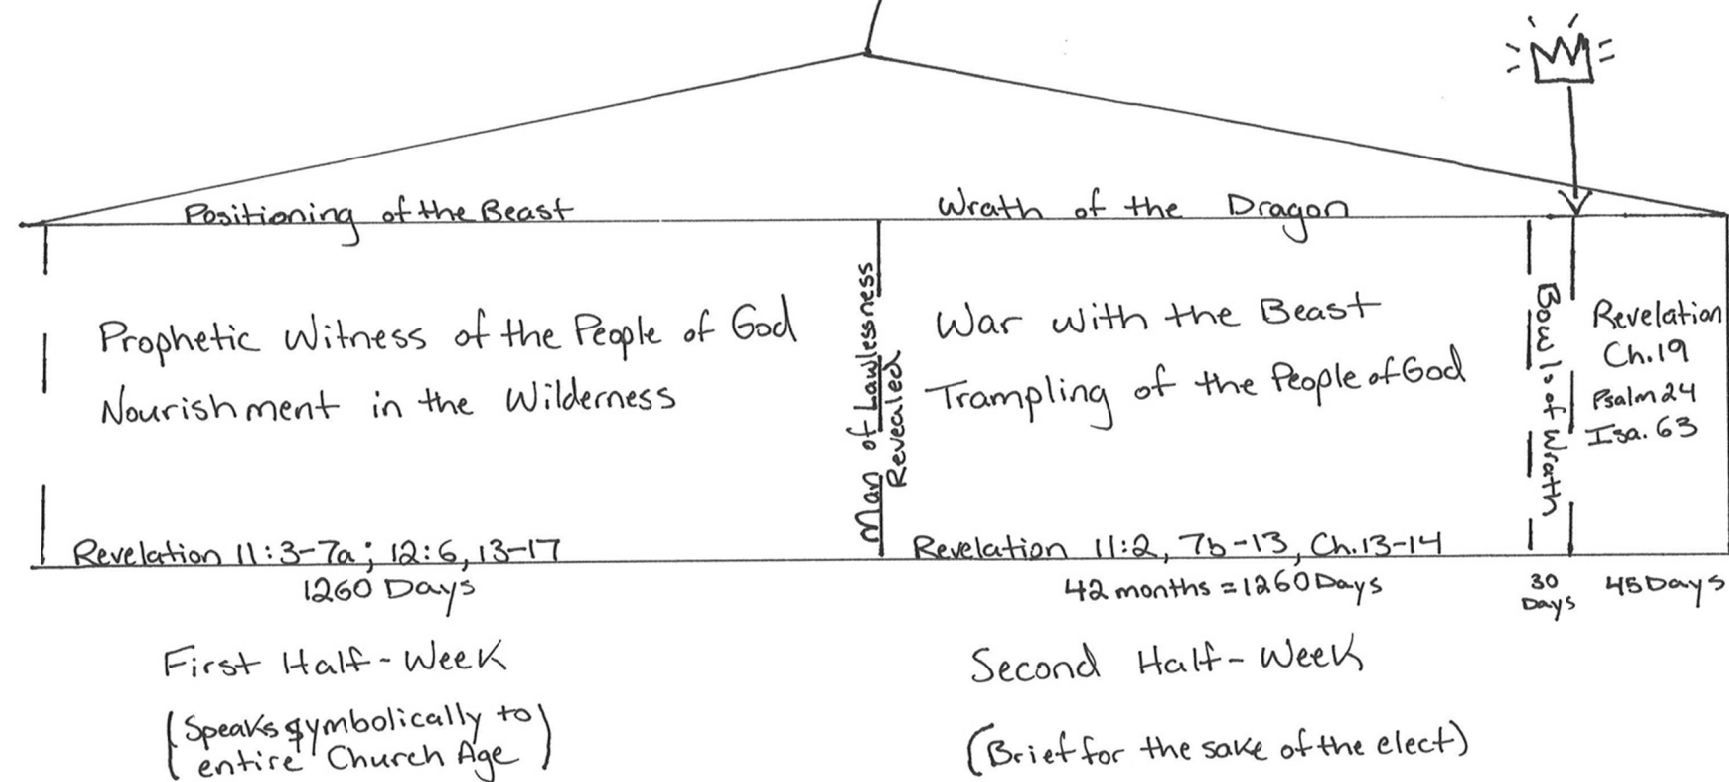 Positioning of the Beast
Wrath of the Dragon
Prophetic Witness of the People of God
Nourishment in the Wilderness
Man of Lawlessness
Revealed
War with the Beast
Trampling of the People of God
Bowls of Wrath
Revelation
Ch.19
Psalm 24
Isa. 63
Revelation 11:3-7a; 12:6, 13-17
Revelation 11:2, 7b-13, Ch.13-14
1260 Days
42 months = 1260 Days
30
Days
45 Days
First Half-Week
Second Half-Week
(Speaks symbolically to
entire Church Age)
(Brief for the sake of the elect)